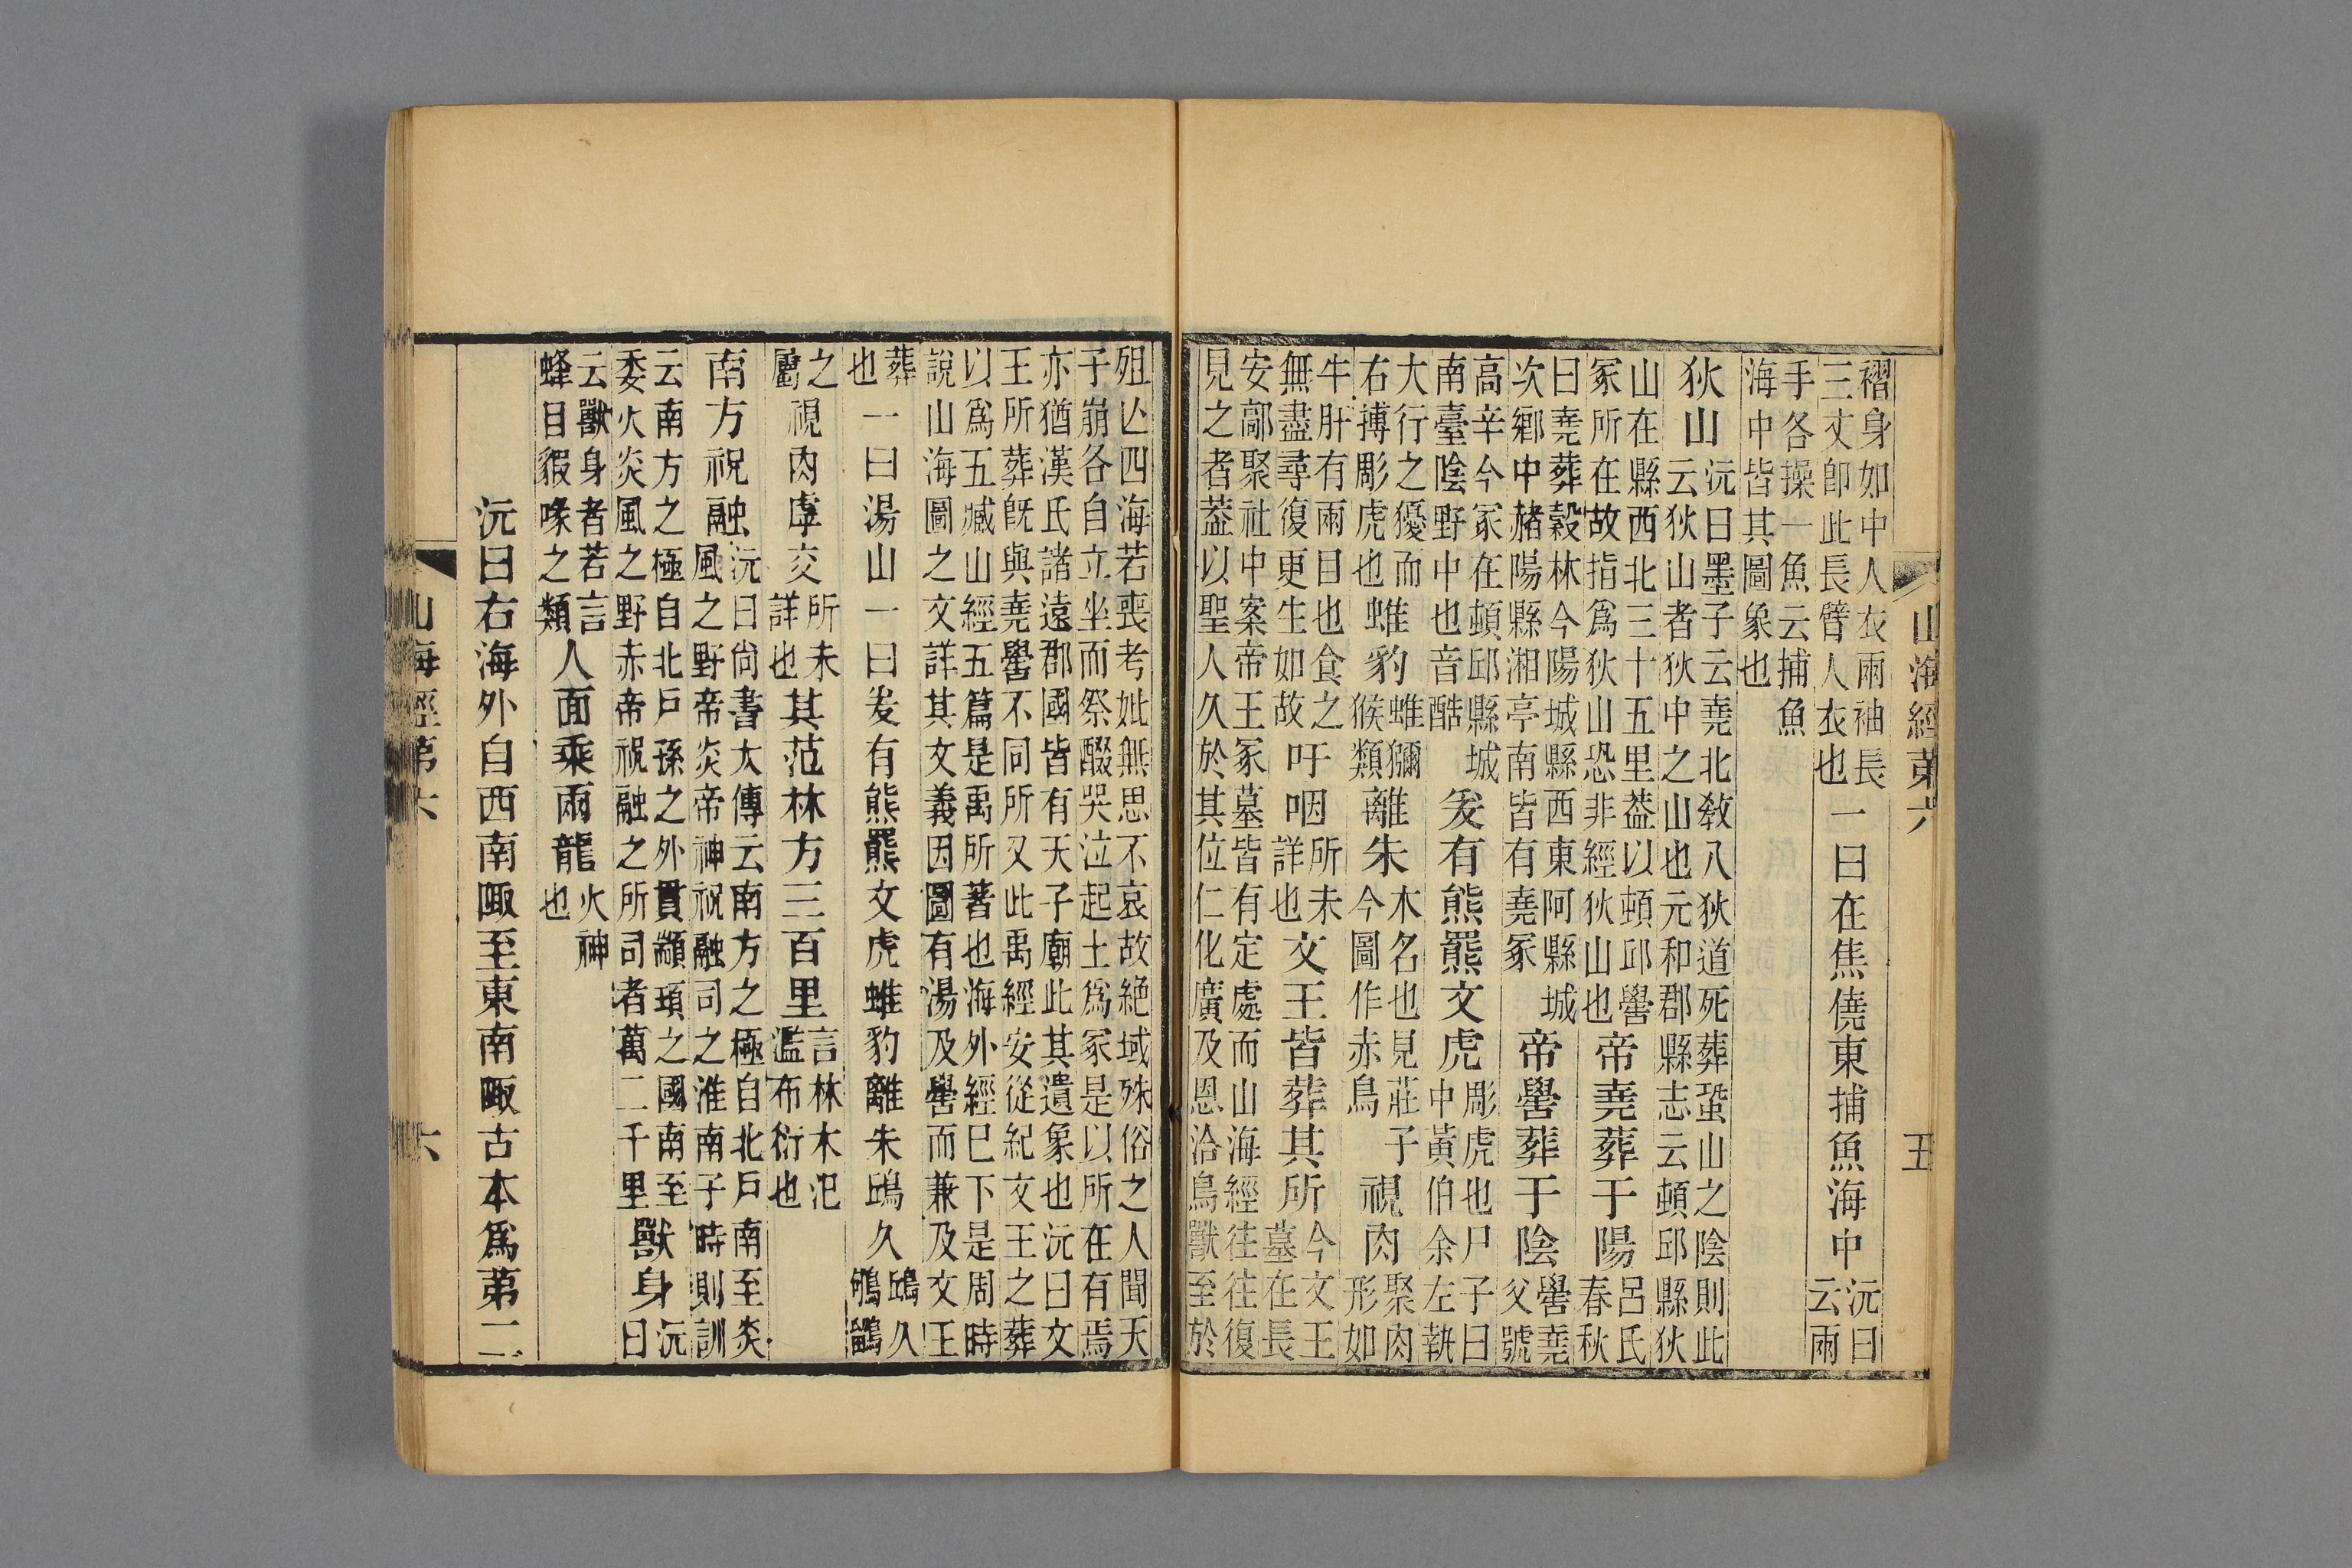 山海經第六 五
褶身如中人衣兩袖長
三丈卽此長臂人衣也
一曰在焦僥東捕魚海中
沅曰
云兩
手各操一魚云捕魚
海中皆其圖象也
狄山
沅曰墨子云堯北敎八狄道死葬蛩山之陰則此
云狄山者狄中之山也元和郡縣志云頓邱縣狄
山在縣西北三十五里葢以頓邱嚳
冢所在故指爲狄山恐非經狄山也
帝堯葬于陽
呂氏
春秋
曰堯葬穀林今陽城縣西東阿縣城
次鄉中赭陽縣湘亭南皆有堯冢
帝嚳葬于陰
嚳堯
父號
高辛今冢在頓邱縣城
南臺陰野中也音酷
爰有熊羆文虎
彫虎也尸子曰
中黃伯余左執
大行之獶而
右搏彫虎也
蜼豹
蜼獼
猴類
離朱
木名也見莊子
今圖作赤鳥
視肉
聚肉
形如
牛肝有兩目也食之
無盡尋復更生如故
吁咽
所未
詳也
文王皆葬其所
今文王
墓在長
安鄗聚社中案帝王冢墓皆有定處而山海經往往復
見之者葢以聖人久於其位仁化廣及恩洽鳥獸至於
殂亾四海若喪考妣無思不哀故絶域殊俗之人聞天
子崩各自立坐而祭醊哭泣起土爲冢是以所在有焉
亦猶漢氏諸遠郡國皆有天子廟此其遺象也沅曰文
王所葬旣與堯嚳不同所又此禹經安從紀文王之葬
以爲五臧山經五篇是禹所著也海外經巳下是周時
說山海圖之文詳其文義因圖有湯及嚳而兼及文王
葬
也
一曰湯山一曰爰有熊羆文虎蜼豹離朱鴟久
鴟久
鵂鶹
之
屬
視肉虖交
所未
詳也
其范林方三百里
言林木汜
濫布衍也
南方祝融
沅曰尙書大傳云南方之極自北戶南至炎
風之野帝炎帝神祝融司之淮南子時則訓
云南方之極自北戶孫之外貫顓頊之國南至
委火炎風之野赤帝祝融之所司者萬二千里
獸身
沅
曰
云獸身者若言
蜂目豭喙之類
人面乘兩龍
火神
也
沅曰右海外自西南陬至東南陬古本爲第二
山海經第六 六